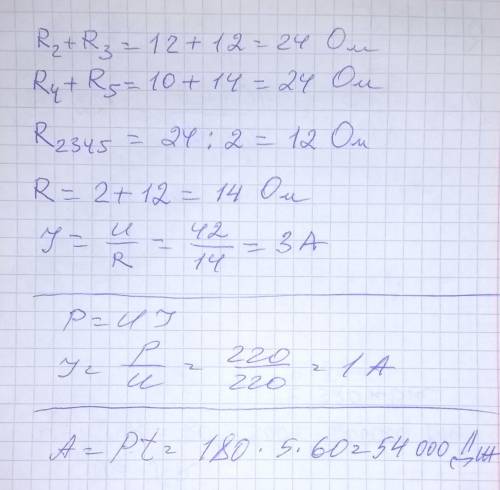 R₂ + R₃ = 12 + 12 = 24 Ом
R₄ + R₅ = 10 + 14 = 24 Ом
R₂₃₄₅ = 24 : 2 = 12 Ом
R = 2 + 12 = 14 Ом
I = U/R = 42/14 = 3 А
P = U I
I = P/U = 220/220 = 1 А
A = Pt = 180 · 5 · 60 = 54 000 Дж